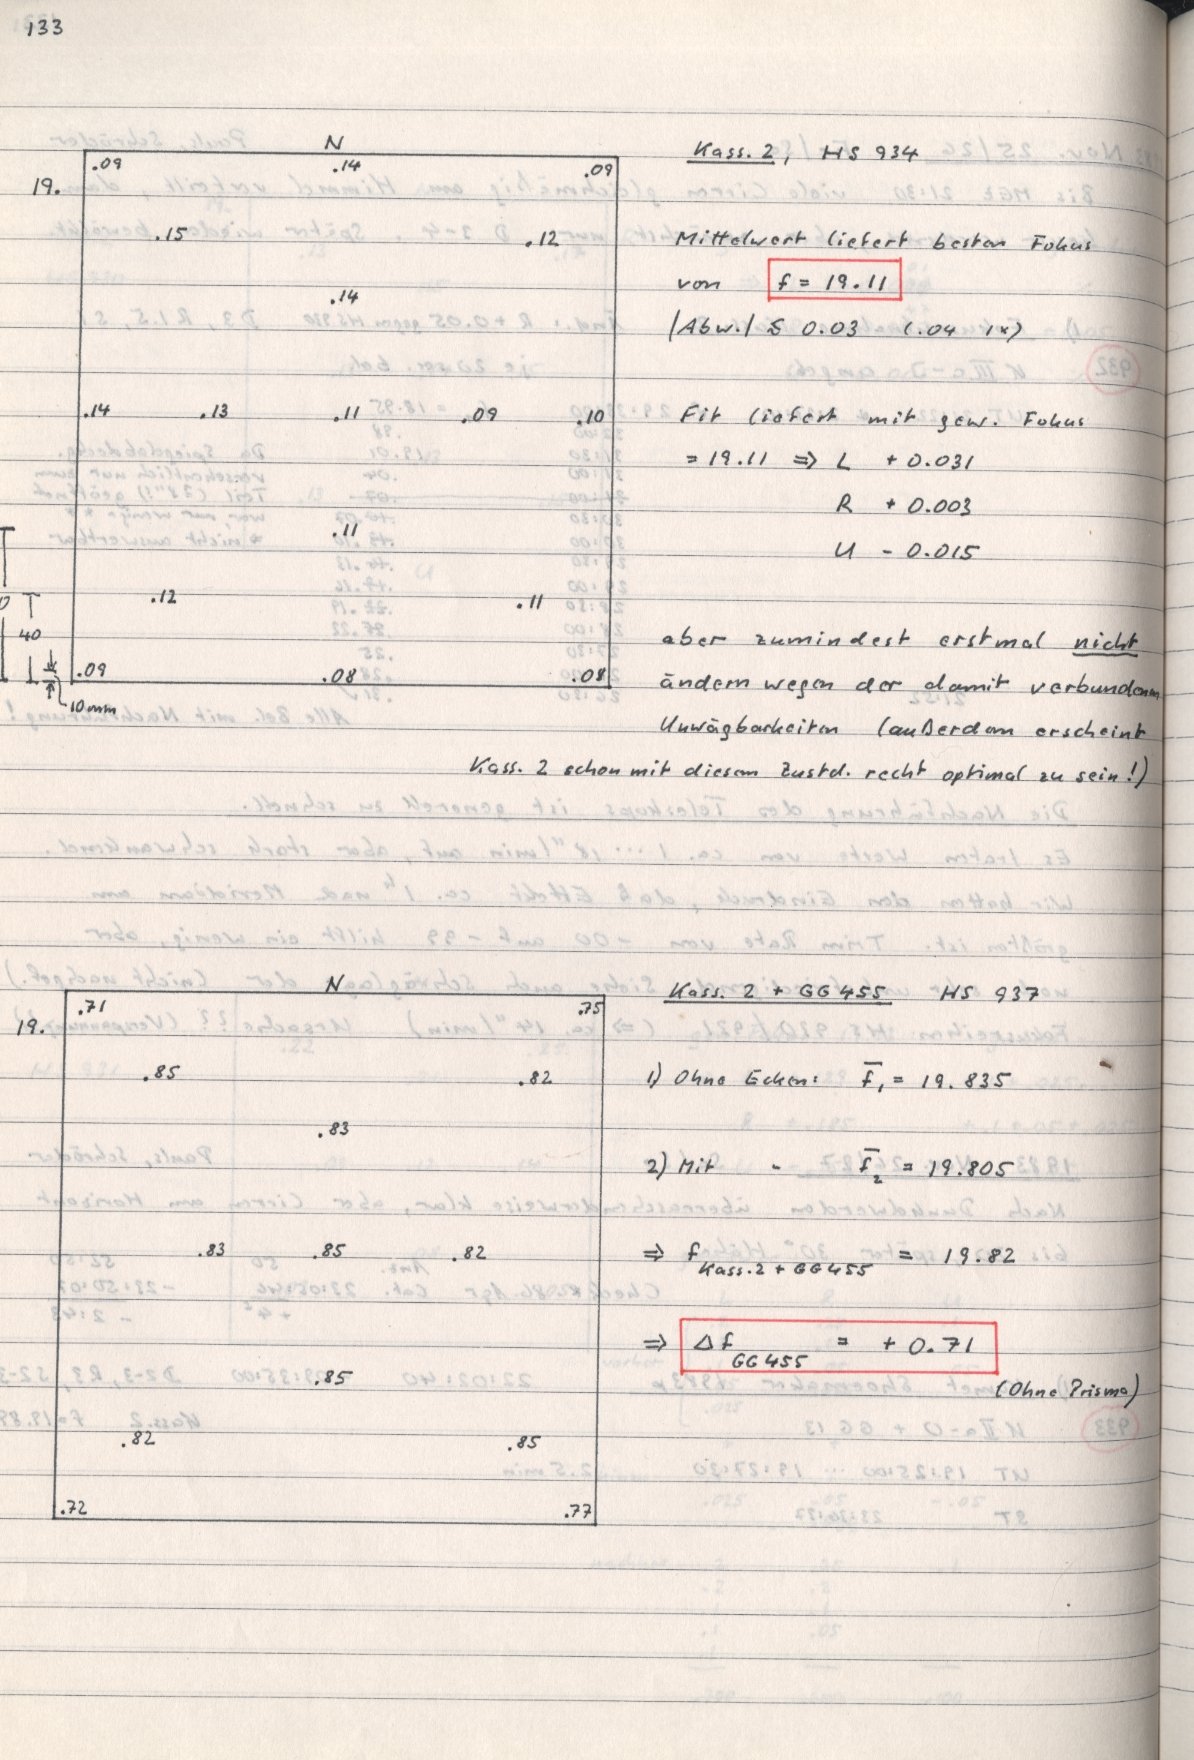 133
N
.09 .14 .09
19.
.15 .12
.14
.14 .13 .11 .09 .10
.11
.12 .11
40
.09 .08 .08
10mm
Kass. 2, HS 934
Mittelwert liefert besten Fokus
von f = 19.11
|Abw.| ≤ 0.03 (.04 1x)
Fit liefert mit gew. Fokus
= 19.11 ⇒ L + 0.031
R + 0.003
U - 0.015
aber zumindest erstmal nicht
ändern wegen der damit verbundenen
Unwägbarkeiten (außerdem erscheint
Kass. 2 schon mit diesem Zustd. recht optimal zu sein!)
N
.71 .75
19.
.85 .82
.83
.83 .85 .82
.85
.82 .85
.72 .77
Kass. 2 + GG 455 HS 937
1) Ohne Ecken: f̄₁ = 19.835
2) Mit - f̄₂ = 19.805
⇒ f Kass. 2 + GG 455 = 19.82
⇒ Δf GG 455 = + 0.71
(Ohne Prisma)